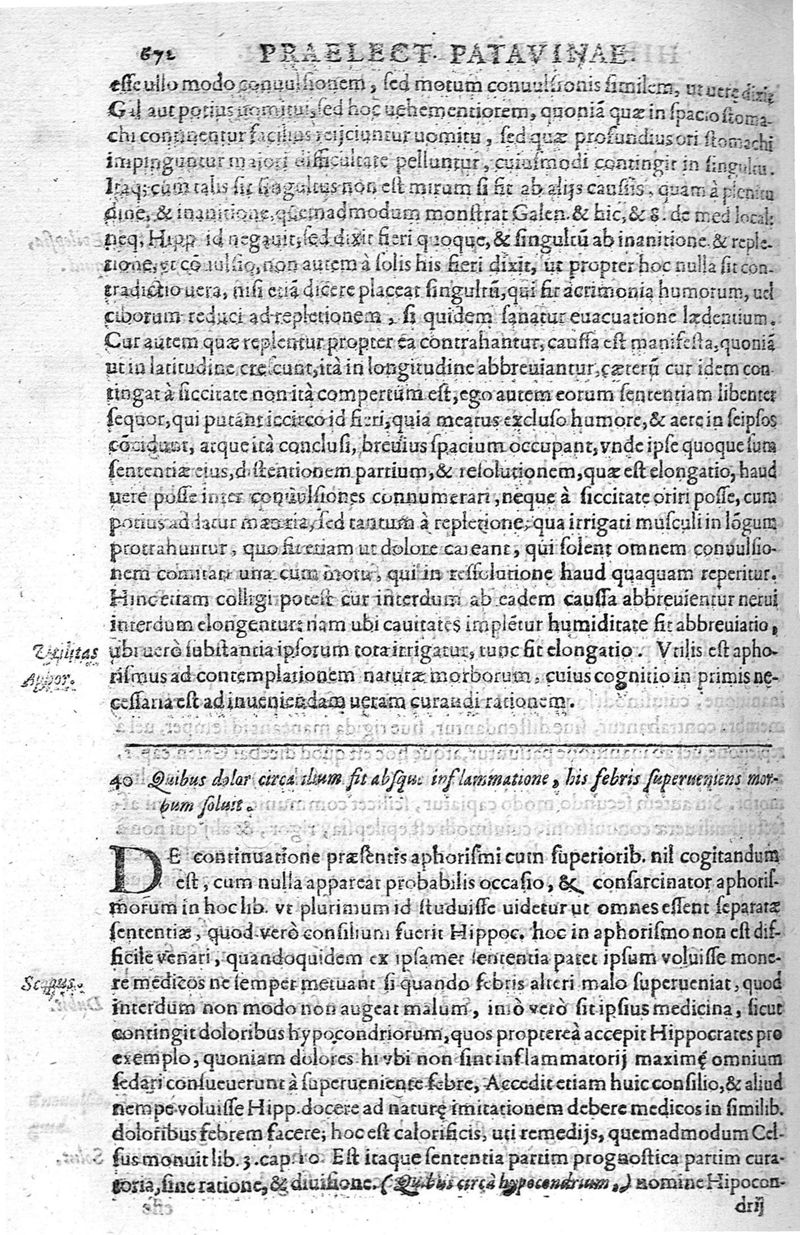 672 PRAELECT. PATAVINAE.
esse ullo modo conuulsionem, sed motum conuulsionis similem, ut uere dixit
Gal. aut potius uomitui, sed hoc uehementiorem, quoniã quæ in spacio stoma-
chi continentur facilius reijciuntur uomitu, sed quæ profundius ori stomachi
impinguntur maiori difficultate pelluntur, cuiusmodi contingit in singultu.
Itaq; cum talis sit singultus non est mirum si fit ab alijs caussis, quàm à plenitu
dine, & inanitione, quemadmodum monstrat Galen. & hic, & 8. de med local:
neq; Hipp id negauit, sed dixit fieri quoque, & singultũ ab inanitione & reple-
tione, vt cõuulsio, non autem à solis his fieri dixit, ut propter hoc nulla sit con-
tradictio uera, nisi etiã dicere placeat singultũ, qui fit acrimonia humorum, uel
ciborum reduci ad repletionem, si quidem sanatur euacuatione lædentium.
Cur autem quæ replentur propter ea contrahantur, caussa est manifesta, quoniã
ut in latitudine crescunt, ità in longitudine abbreuiantur, cæterũ cur idem con-
tingat à siccitate non ità compertum est, ego autem eorum sententiam libenter
sequor, qui putant iccirco id fieri, quia meatus excluso humore, & aere in seipsos
cõcidunt, atque ità conclusi, breuius spacium occupant, vnde ipse quoque sum
sententiæ eius, distentionem partium, & resolutionem, quæ est elongatio, haud
uere posse inter conuulsiones connumerari, neque à siccitate oriri posse, cum
potius ad latur materia, sed tantum à repletione, qua irrigati musculi in lõgum
protrahuntur, quo fit etiam ut dolore careant, qui solent omnem conuulsio-
nem comitari una cum motu, qui in ressolutione haud quaquam reperitur.
Hinc etiam colligi potest cur interdum ab eadem caussa abbreuientur nerui
interdum elongentur: nam ubi cauitates implẽtur humiditate fit abbreuiatio,
ubi uerò substantia ipsorum tota irrigatur, tunc fit elongatio. Vtilis est apho-
Vtilitas
rismus ad contemplationem naturæ morborum, cuius cognitio in primis ne-
Aphor.
cessaria est ad inueniendam ueram curandi rationem.
40 Quibus dolor circa ilium fit absque inflammatione, his febris superueniens mor-
bum soluit.
DE continuatione præsentis aphorismi cum superiorib. nil cogitandum
est, cum nulla appareat probabilis occasio, & consarcinator aphoris-
morum in hoc lib. vt plurimum id studuisse uidetur ut omnes essent separatæ
sententiæ, quod verò consilium fuerit Hippoc. hoc in aphorismo non est dif-
ficile venari, quandoquidem ex ipsamet sententia patet ipsum voluisse mone-
Scopus.
re medicos ne semper metuant si quando febris alteri malo superueniat, quod
interdum non modo non augeat malum, imò verò sit ipsius medicina, sicut
contingit doloribus hypocondriorum, quos proptereà accepit Hippocrates pro
exemplo, quoniam dolores hi vbi non sint inflammatorij maximę omnium
sedari consueuerunt à superueniente febre, Accedit etiam huic consilio, & aliud
nempe voluisse Hipp. docere ad naturę imitationem debere medicos in similib.
doloribus febrem facere; hoc est calorificis, uti remedijs, quemadmodum Cel-
sus monuit lib. 3. cap. 10. Est itaque sententia partim prognostica partim cura-
toria, sine ratione, & diuisione. (Quibus circà hypocondrium.) nomine Hipocon-
drij